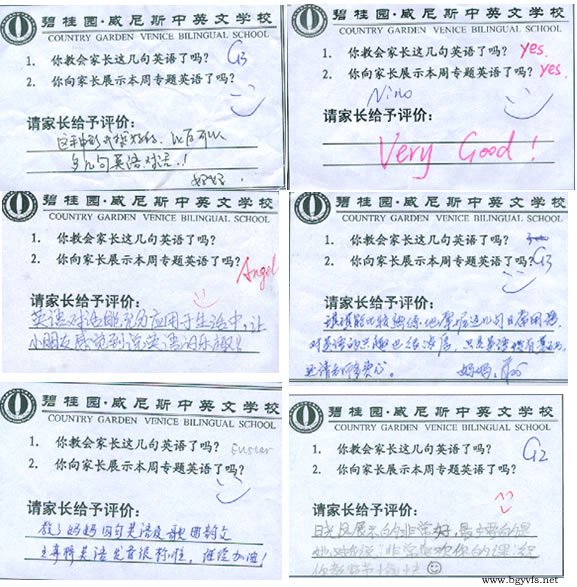 碧桂园·威尼斯中英文学校
COUNTRY GARDEN VENICE BILINGUAL SCHOOL
1. 你教会家长这几句英语了吗?
G3
2. 你向家长展示本周专题英语了吗?
请家长给予评价:
这种形式挺好的,以后可以
多几句英语对话!
碧桂园·威尼斯中英文学校
COUNTRY GARDEN VENICE BILINGUAL SCHOOL
1. 你教会家长这几句英语了吗? yes.
2. 你向家长展示本周专题英语了吗? yes.
Nino
请家长给予评价:
Very Good!
碧桂园·威尼斯中英文学校
COUNTRY GARDEN VENICE BILINGUAL SCHOOL
1. 你教会家长这几句英语了吗?
2. 你向家长展示本周专题英语了吗?
Angel
请家长给予评价:
英语对话能充分应用于生活中,让
小朋友感觉到说英语的乐趣!
碧桂园·威尼斯中英文学校
COUNTRY GARDEN VENICE BILINGUAL SCHOOL
1. 你教会家长这几句英语了吗?
2. 你向家长展示本周专题英语了吗?
G3
请家长给予评价:
比较熟练地掌握这几句日常用语,
对英语的兴趣也很浓厚,
妈妈
碧桂园·威尼斯中英文学校
COUNTRY GARDEN VENICE BILINGUAL SCHOOL
1. 你教会家长这几句英语了吗?
2. 你向家长展示本周专题英语了吗?
请家长给予评价:
教了妈妈四句英语及歌曲韵文
英语发音很标准,继续加油!
碧桂园·威尼斯中英文学校
COUNTRY GARDEN VENICE BILINGUAL SCHOOL
1. 你教会家长这几句英语了吗?
G2
2. 你向家长展示本周专题英语了吗?
请家长给予评价:
展示的非常好,最主要的是
她对我说:非常喜欢
www.bgyvfs.net